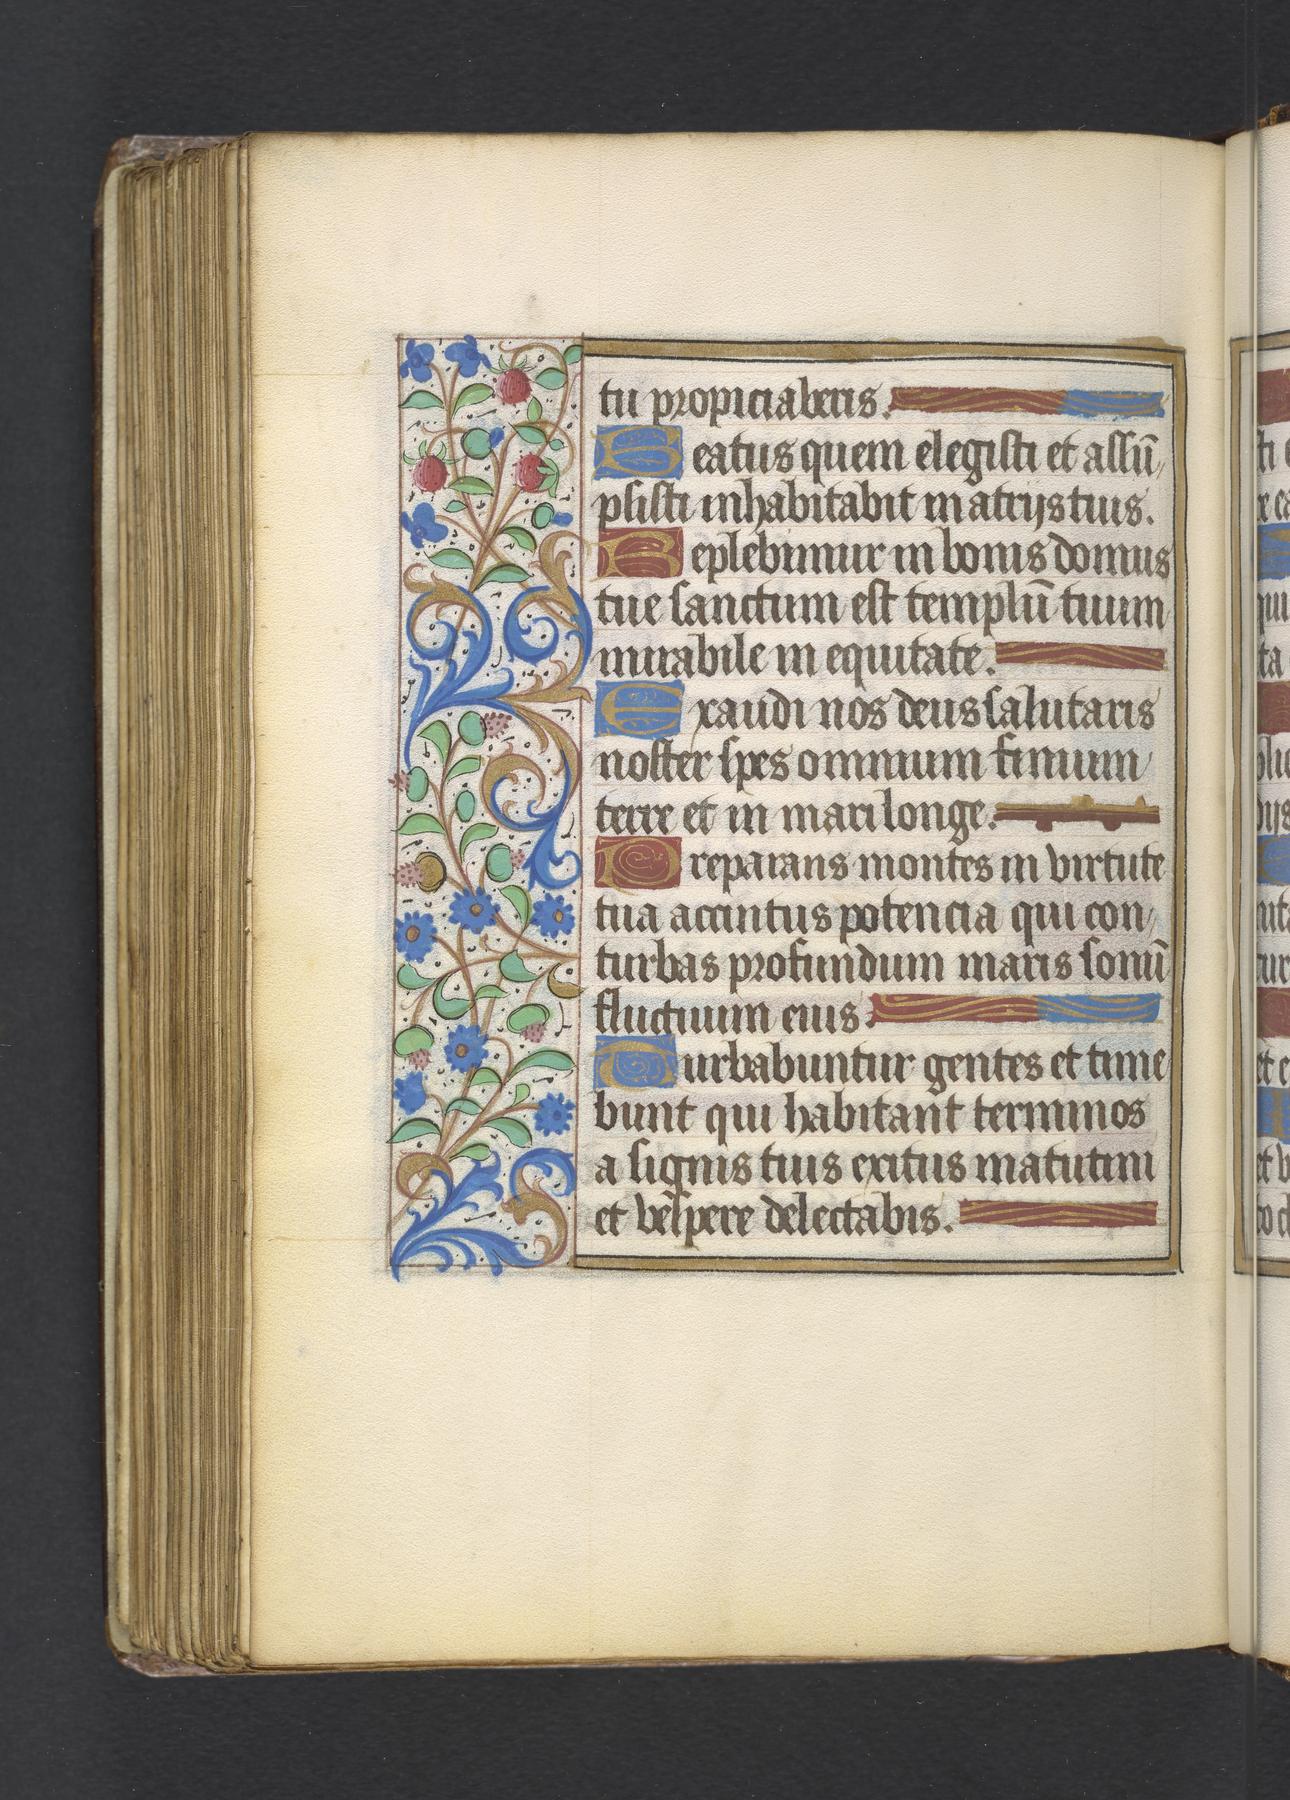 tu propiciaberis.
Beatus quem elegisti et assū
psisti inhabitabit in atrijs tuis.
Replebimur in bonis domus
tue sanctum est templū tuum
mirabile in equitate.
Exaudi nos deus salutaris
noster spes omnium finium
terre et in mari longe.
Preparans montes in virtute
tua accintus potencia qui con
turbas profundum maris sonū
fluctuum eius.
Turbabuntur gentes et time
bunt qui habitant terminos
a signis tuis exitus matutini
et vespere delectabis.